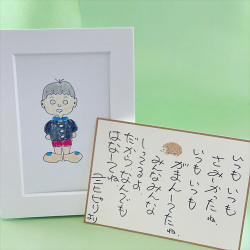 いつもいつも
さみしかったね。
いつもいつも
がまんしてたね。
みんなみんな
しってるよ。
だからなんでも
はなしてね